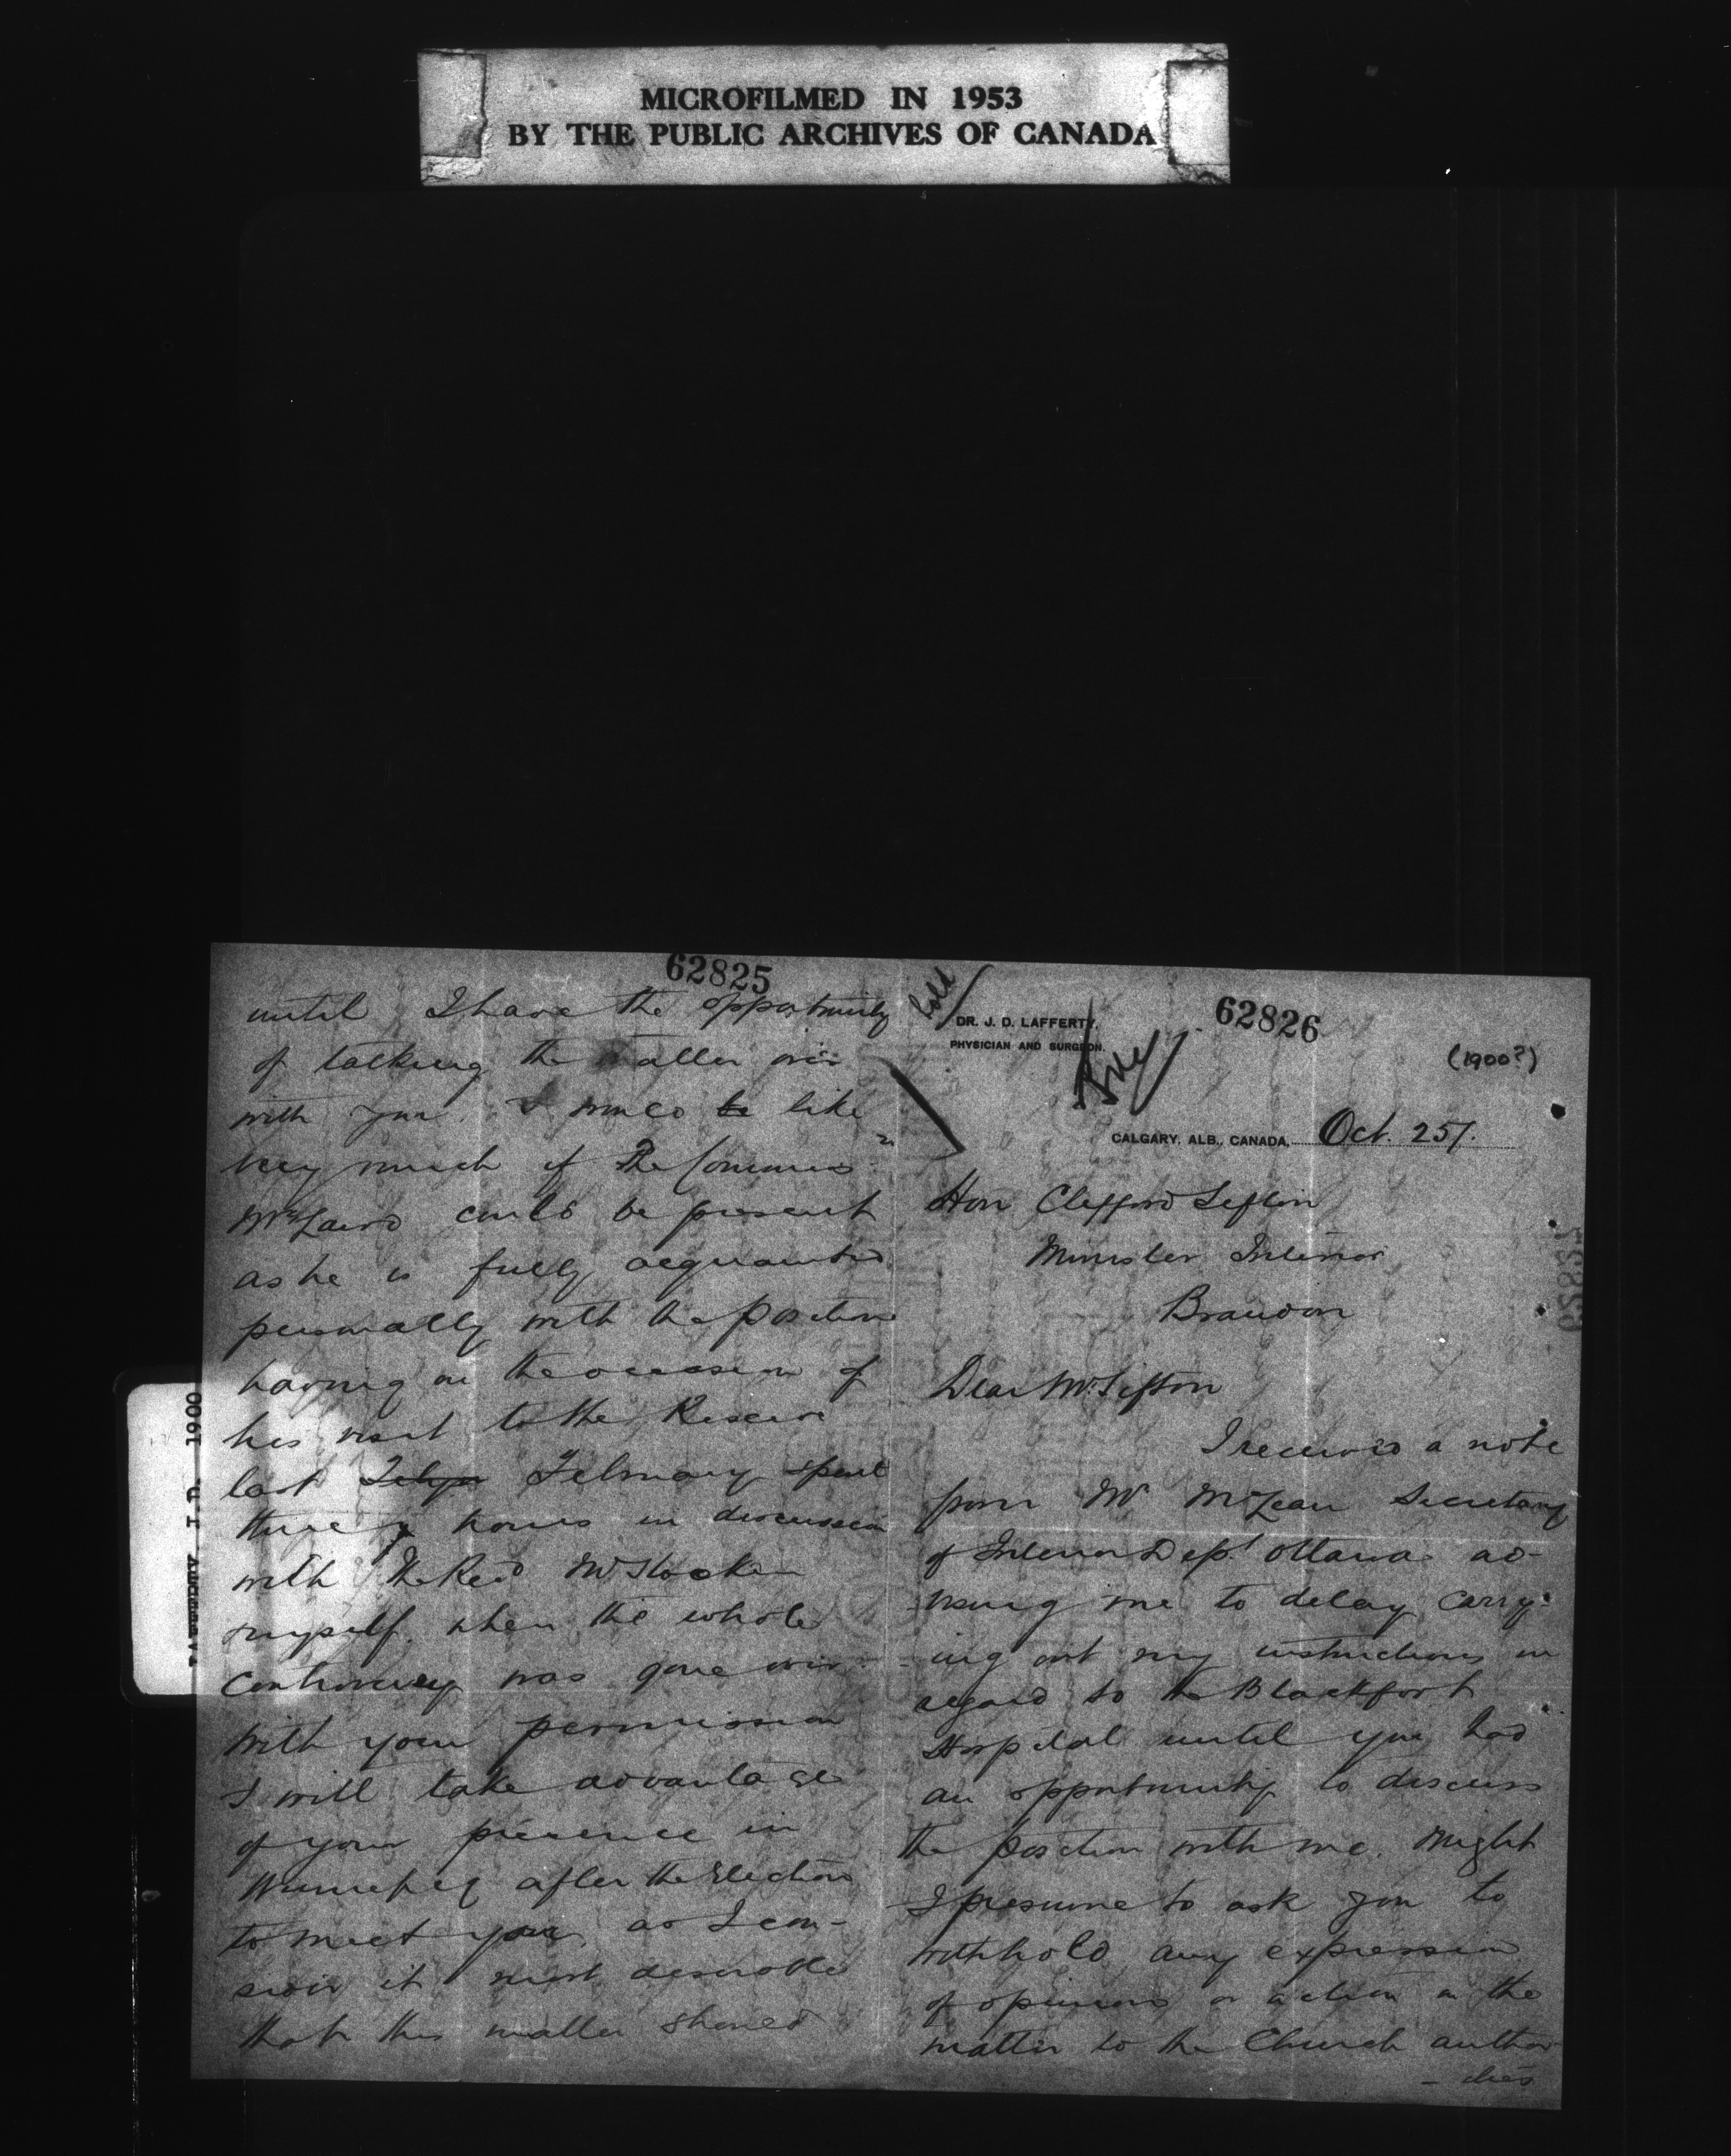 MICROFILMED IN 1953
BY THE PUBLIC ARCHIVES OF CANADA
62825
until I have the opportunity
of talking the matter over
with you. I would be like
very much if The Commiss
Mr Laird could be present
as he is fully acquainted
personally with the position
having on the occasion of
his visit to the Reserve
last February spent
three hours in discussion
with The Revd Mr Stocken
myself. when the whole
controversy was gone over.
With your permission
I will take advantage
of your presence in
Winnipeg after the Elections
to meet you, as I con-
sider it most desirable
that this matter should
LAFFERTY, J.D. 1900
62826
DR. J. D. LAFFERTY,
PHYSICIAN AND SURGEON.
(1900?)
CALGARY, ALB., CANADA, Oct. 25/.
Hon Clifford Sifton
Minister Interior
Brandon
Dear Mr Sifton
I received a note
from Mr McLean Secretary
of Interior Dept Ottawa ad-
vising me to delay carry-
ing out my instructions in
regard to the Blackfoot
Hospital until you had
an opportunity to discuss
the position with me. Might
I presume to ask you to
withhold any expression
of opinions or action in the
matter to the Church author
- ities